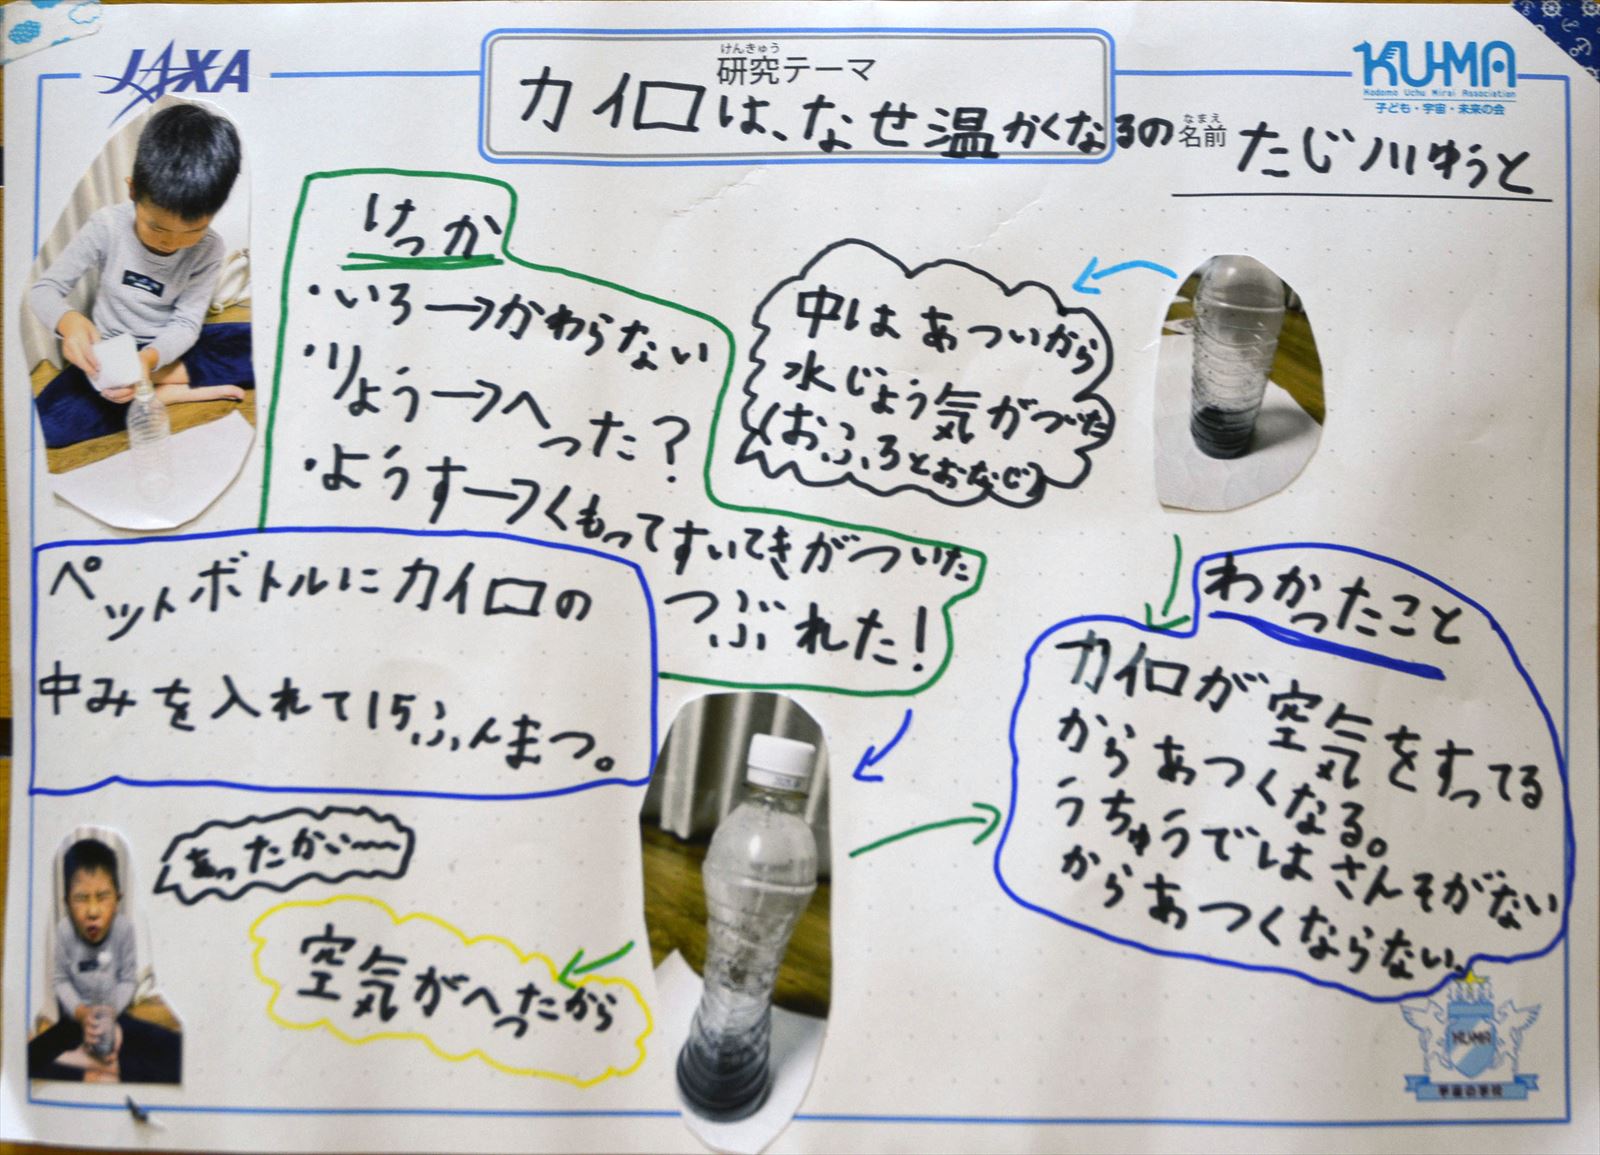 JAXA
けんきゅう
研究テーマ
カイロは、なせ温かくなるの
KU-MA
Kodomo Uchu Mirai Association
子ども・宇宙・未来の会
なまえ
名前
たじ川ゆうと
けっか
・いろ→かわらない
・りょう→へった?
・ようす→くもってすいてきがついた
つぶれた!
中はあついから
水じょう気がづた
(おふろとおなじ)
ペットボトルにカイロの
中みを入れて15ふんまつ。
あったかい〜
空気がへったから
わかったこと
カイロが空気をすってる
からあつくなる。
うちゅうではさんそがない
からあつくならない。
KU-MA
宇宙の学校